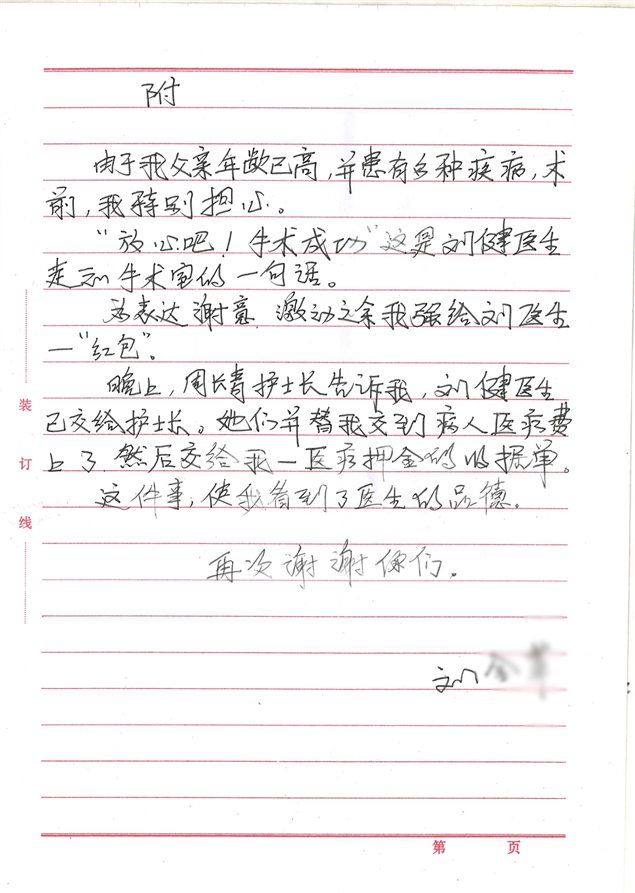 附
由于我父亲年岁已高，并患有多种疾病，术
前，我特别担心。
“放心吧！手术成功”这是刘健医生
走出手术室的一句话。
为表达谢意，激动之余我强给刘医生
一“红包”。
晚上，周长青护士长告诉我，刘健医生
已交给护士长。她们并替我交到病人医疗费
上了，然后交给我一医疗押金的收据单。
这件事，使我看到了医生的品德。
再次谢谢你们。
刘
装
订
线
第 页